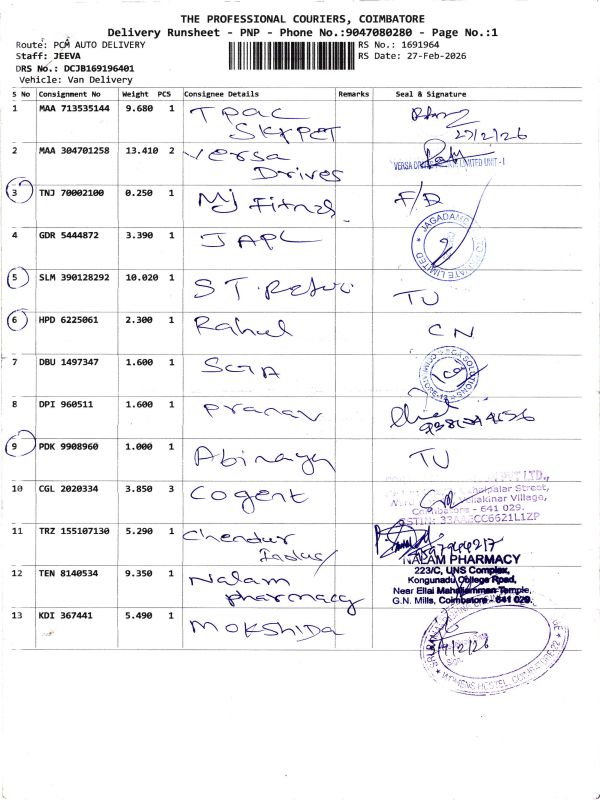 THE PROFESSIONAL COURIERS, COIMBATORE
Delivery Runsheet - PNP - Phone No.:9047080280 - Page No.:1
Route: PCM AUTO DELIVERY
Staff: JEEVA
DRS No.: DCJB169196401
Vehicle: Van Delivery
RS No.: 1691964
RS Date: 27-Feb-2026
S No Consignment No Weight PCS Consignee Details Remarks Seal & Signature
1 MAA 713535144 9.680 1 Tpac
SKYPET
27/2/26
2 MAA 304701258 13.410 2 Versa
Drives
VERSA LIMITED UNIT - I
3 TNJ 70002100 0.250 1 MJ F/D
4 GDR 5444872 3.390 1 JAPL
LIMITED
5 SLM 390128292 10.020 1 S T. TU
6 HPD 6225061 2.300 1 Rahul CN
7 DBU 1497347 1.600 1
SOLUTIONS
8 DPI 960511 1.600 1 Pranav
9 PDK 9908960 1.000 1 Abinaya TU
10 CGL 2020334 3.850 3 Cogent
LTD.,
Street,
Village,
Coimbatore - 641 029.
11 TRZ 155107130 5.290 1 Chendur
12 TEN 8140534 9.350 1 Nalam
Pharmacy
NALAM PHARMACY
223/C, UNS Complex,
Kongunadu College Road,
Near Ellai Mahaliamman Temple,
G.N. Mills, Coimbatore - 641 029.
13 KDI 367441 5.490 1 MOKSHIDA
WOMENS HOSTEL, COIMBATORE-22